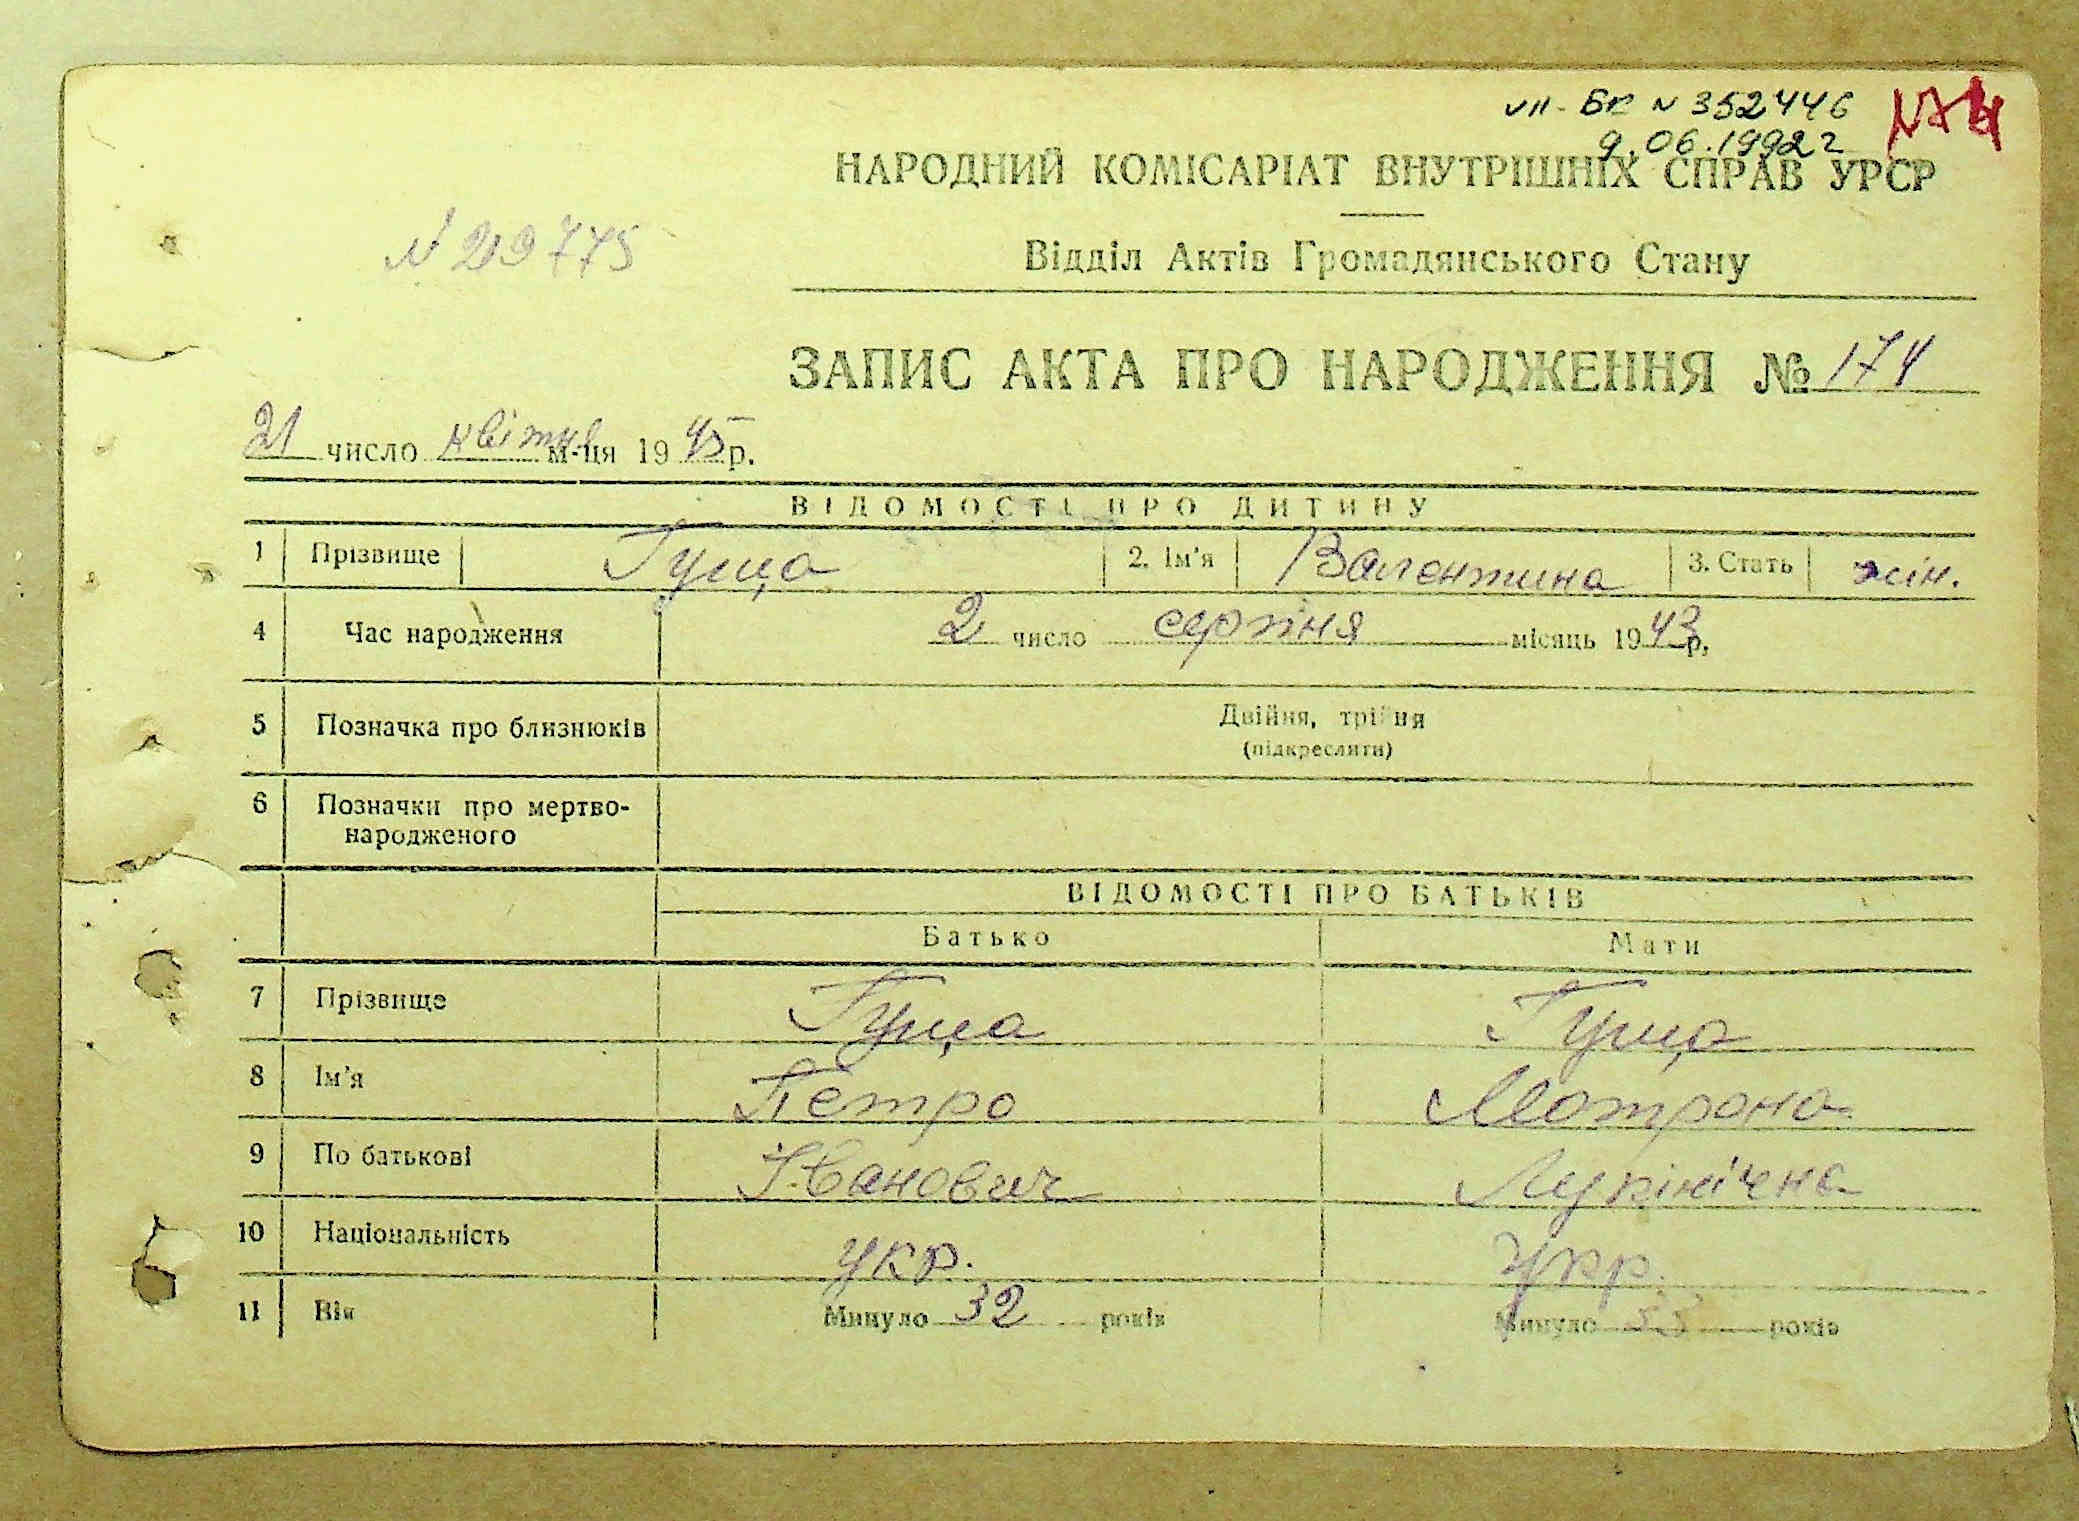 VII - БК N 352446
9.06.1992 г
НАРОДНИЙ КОМІСАРІАТ ВНУТРІШНІХ СПРАВ УРСР
N 29775
Відділ Актів Громадянського Стану
ЗАПИС АКТА ПРО НАРОДЖЕННЯ № 174
21 число квітня м-ця 1945 р.
ВІДОМОСТІ ПРО ДИТИНУ
1 Прізвище Гуща 2. Ім'я Валентина 3. Стать жін.
4 Час народження 2 число серпня місяць 1943 р,
5 Позначка про близнюків Двійня, трійня
(підкреслити)
6 Позначки про мертво-
народженого
ВІДОМОСТІ ПРО БАТЬКІВ
Батько Мати
7 Прізвище Гуща Гуща
8 Ім'я Петро Мотрона
9 По батькові Іванович Лукінічна
10 Національність укр. укр.
11 Вік Минуло 32 років Минуло років